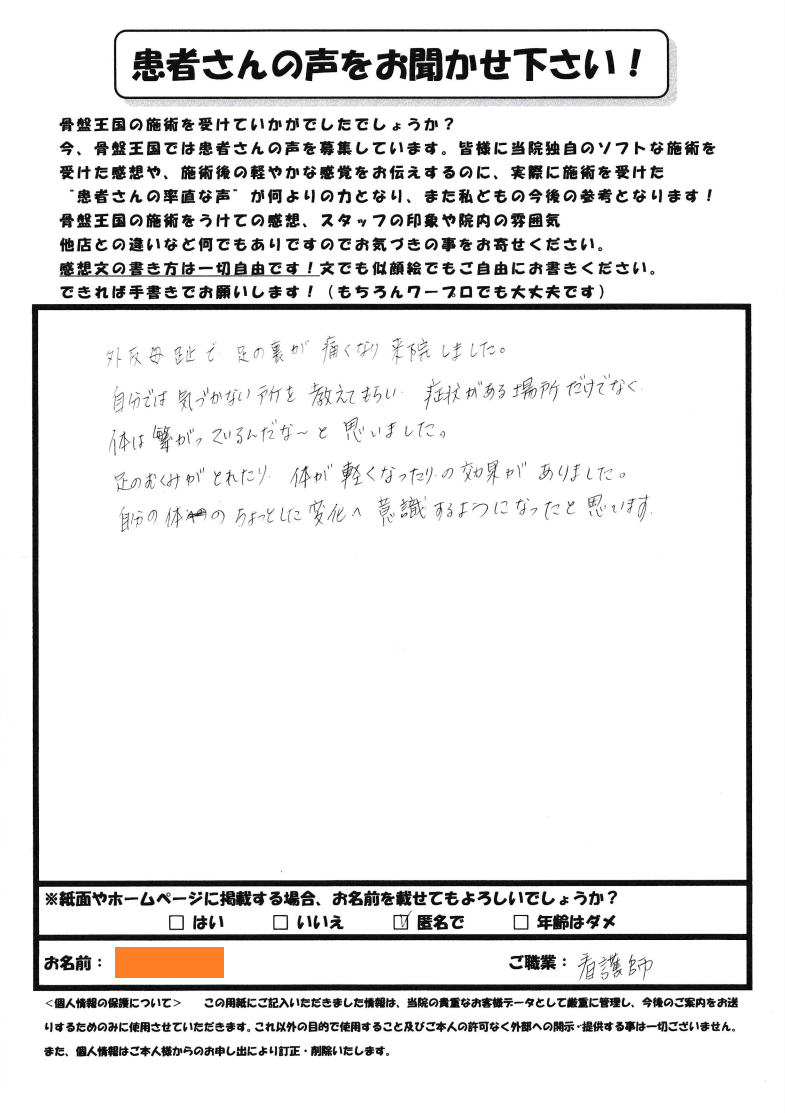 患者さんの声をお聞かせ下さい！
骨盤王国の施術を受けていかがでしたでしょうか？
今、骨盤王国では患者さんの声を募集しています。皆様に当院独自のソフトな施術を
受けた感想や、施術後の軽やかな感覚をお伝えするのに、実際に施術を受けた
"患者さんの率直な声"が何よりの力となり、また私どもの今後の参考となります！
骨盤王国の施術をうけての感想、スタッフの印象や院内の雰囲気
他店との違いなど何でもありですのでお気づきの事をお寄せください。
感想文の書き方は一切自由です！文でも似顔絵でもご自由にお書きください。
できれば手書きでお願いします！（もちろんワープロでも大丈夫です）
外反母趾で 足の裏が 痛くなり 来院しました。
自分では気づかない所を 教えてもらい 症状がある場所だけでなく
体は繋がっているんだな～と思いました。
足のむくみがとれたり 体が軽くなったりの効果がありました。
自分の体の ちょっとした変化へ 意識するようになったと思います。
※紙面やホームページに掲載する場合、お名前を載せてもよろしいでしょうか？
□ はい □ いいえ ☑ 匿名で □ 年齢はダメ
お名前： ご職業：看護師
＜個人情報の保護について＞ この用紙にご記入いただきました情報は、当院の貴重なお客様データとして厳重に管理し、今後のご案内をお送
りするためのみに使用させていただきます。これ以外の目的で使用すること及びご本人の許可なく外部への開示・提供する事は一切ございません。
また、個人情報はご本人様からのお申し出により訂正・削除いたします。